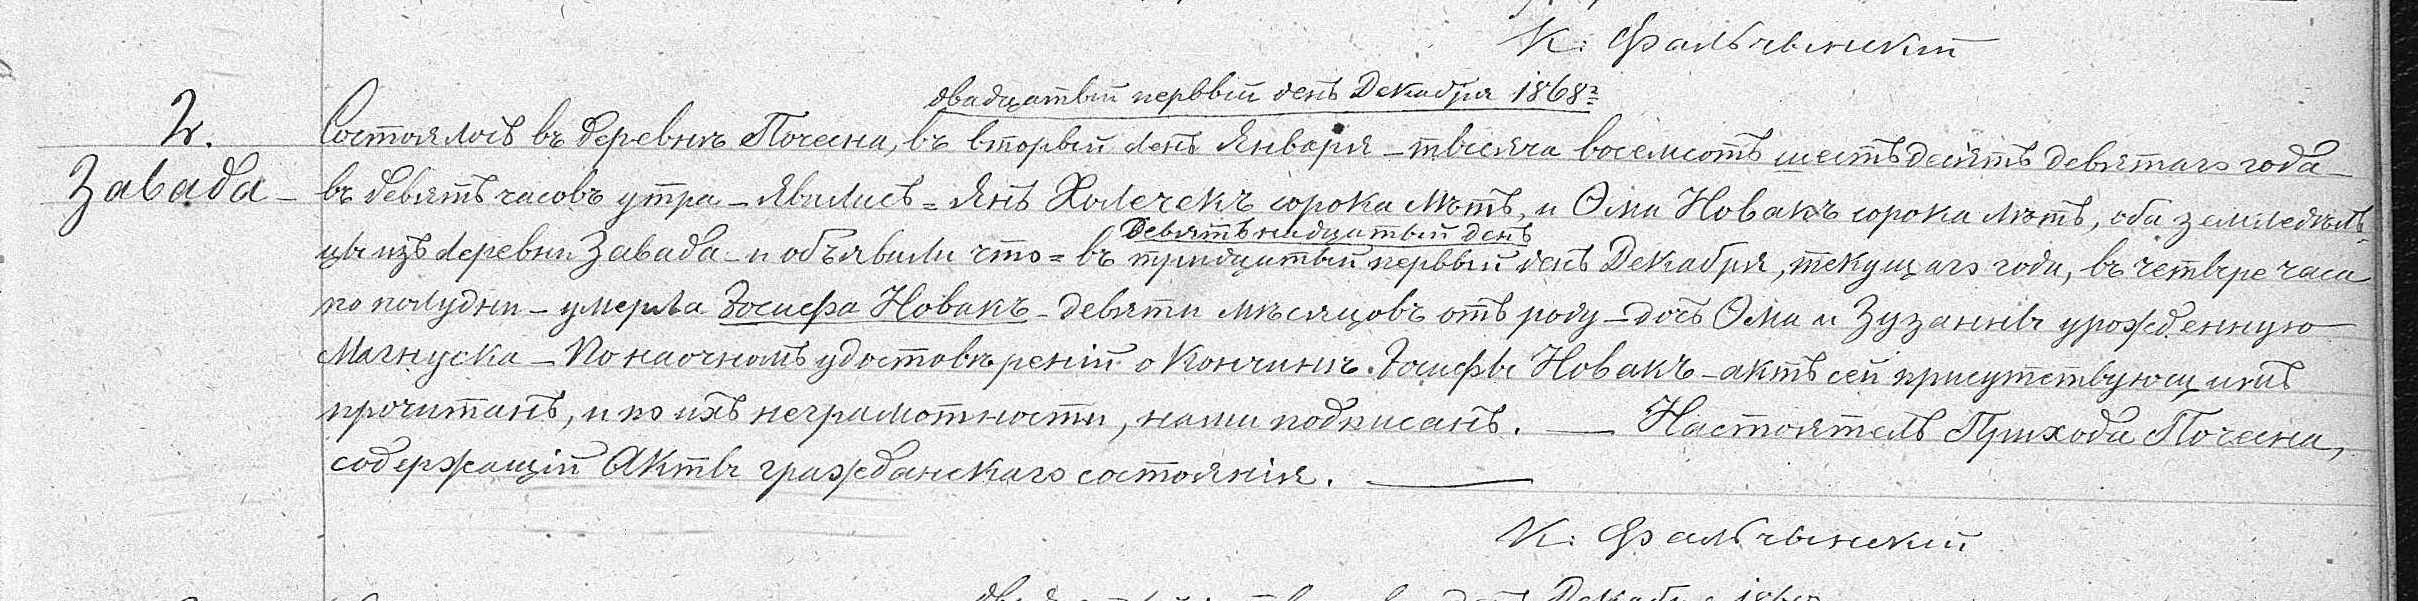 К: Фальчынскій
двадцатый перввый день Декабря 1868 г
2. Состоялось въ деревнѣ Почесна, въ вторый день Января – тысяча восемсотъ шестьдесятъ девятаго года –
Завада – въ девять часовъ утра – явились = Янъ Холечекъ сорока лѣтъ, и Ома Новакъ сорока лѣтъ, оба земледѣль-
цы изъ деревни Завада – и объявили что = въ тридцатый перввый день Декабря, текущаго года, въ четыре часа
Девятьнадцатый день
по полудни – умерла Іосифа Новакъ – девяти мѣсяцовъ отъ роду – дочь Ома и Зузанны урожденную
Магнуска – По наочномъ удостовѣреній о Кончинѣ Іосифы Новакъ – актъ сей присутствующимъ
прочитанъ, и по ихъ неграмотности, нами подписанъ. — Настоятель Прихода Почесна,
содержащій Акты гражданскаго состоянія. —
К: Фальчынскій
Декабря